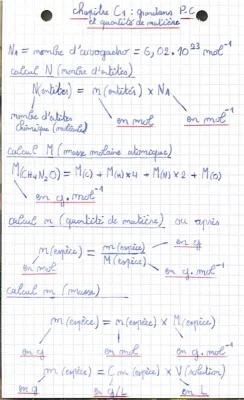 chapitre C1 : grandeurs P.C
et quantité de matière
NA = nombre d'avogadro = 6,02.10²³ mol⁻¹
calcul N (nombre d'entités)
N(entités) = n(entités) × NA
nombre d'entités
chimique (molécules)
en mol
en mol⁻¹
calcul M (masse molaire atomique)
M(CH4N2O) = M(C) + M(H)×4 + M(N)×2 + M(O)
en g.mol⁻¹
calcul n (quantité de matière) ou après
n(espèce) = m(espèce) / M(espèce)
en g
en mol
en g.mol⁻¹
calcul m (masse)
m(espèce) = n(espèce) × M(espèce)
en g
en mol
en g.mol⁻¹
m(espèce) = Cm(espèce) × V(solution)
en g
en g/L
en L